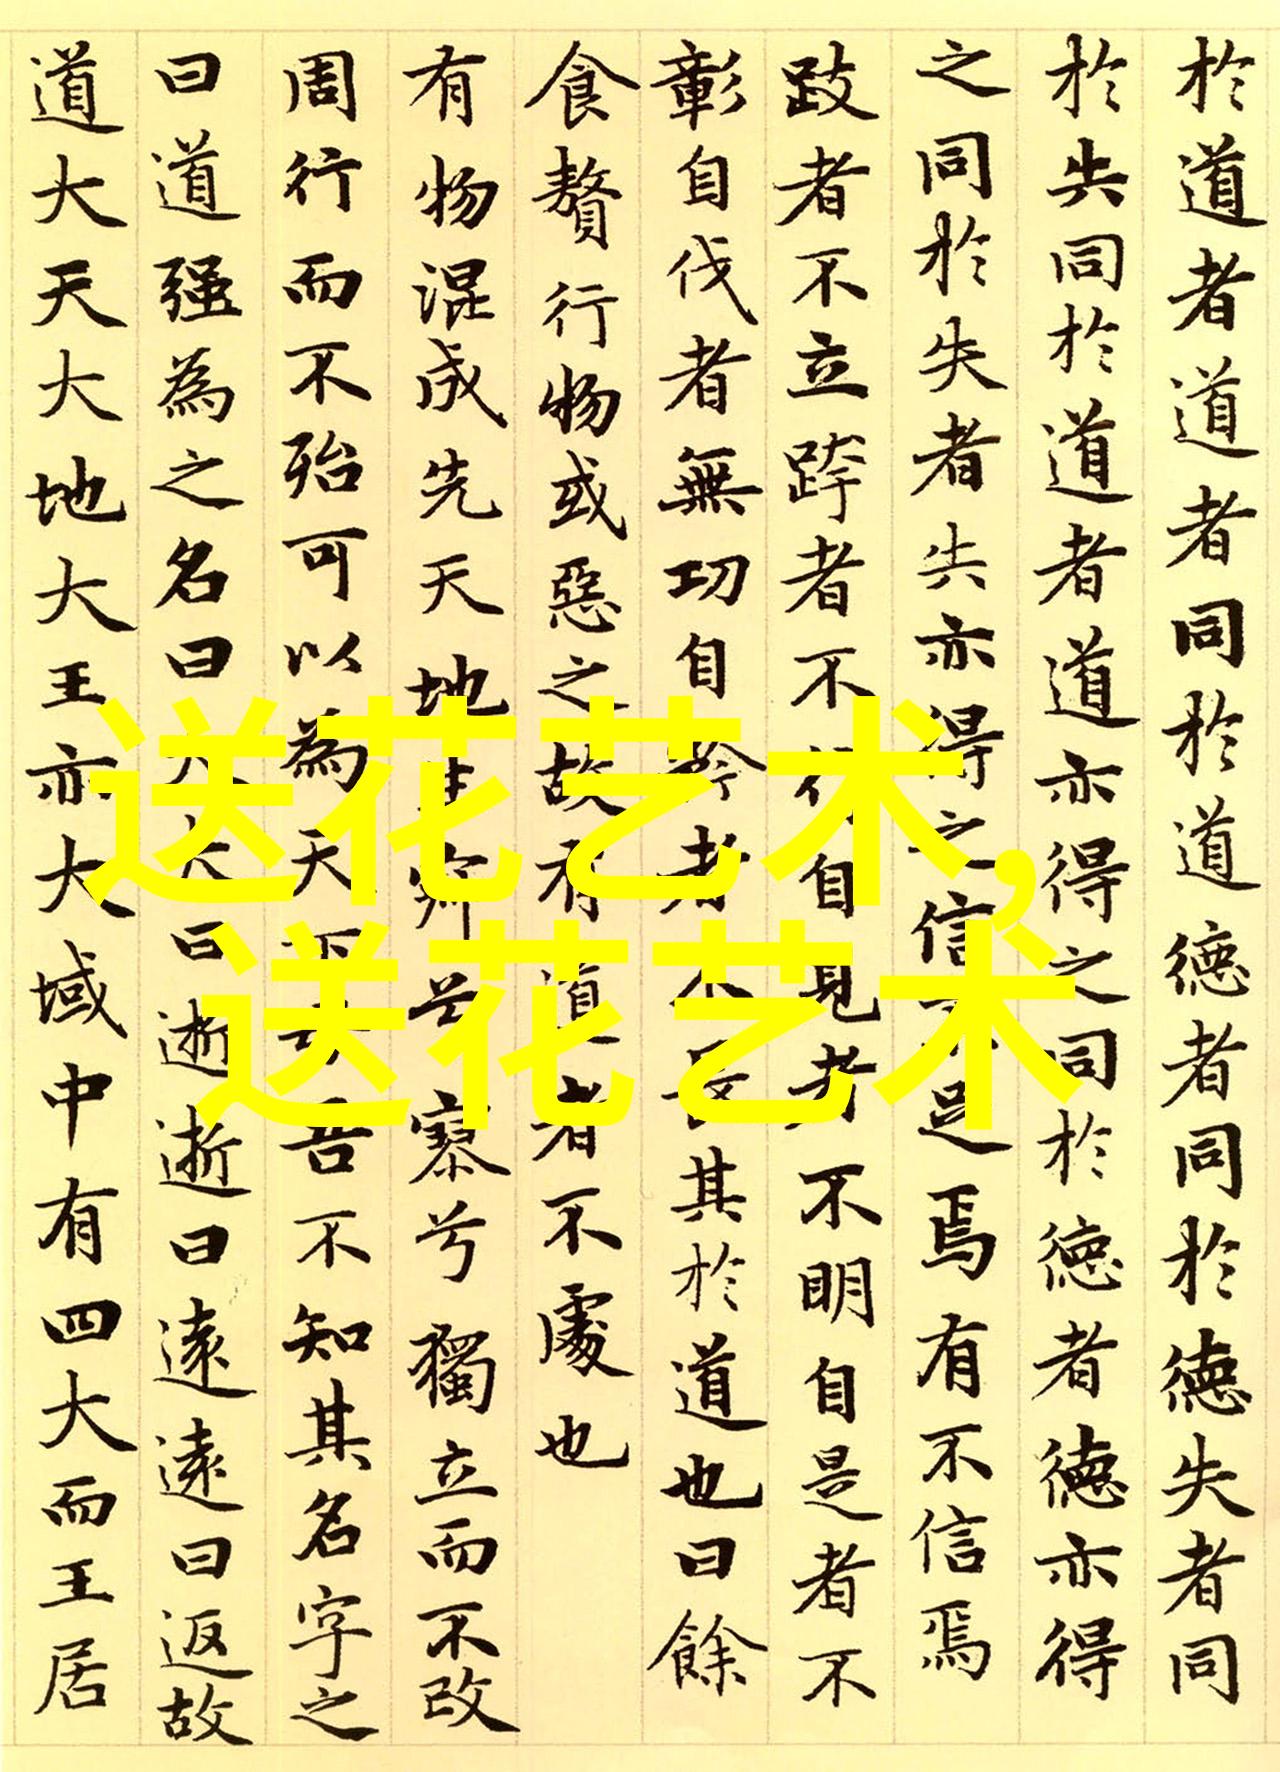 於道者道者同於道德者同於德失者同
於失同於道者道亦得之同於德者德亦得
之同於失者失亦得之信不足焉有不信焉
跂者不立跨者不行自見者不明自是者不
彰自伐者無功自矜者不長其於道也曰餘
食贅行物或惡之故有道者不處也
有物混成先天地生寂兮寥兮獨立而不改
周行而不殆可以為天下母吾不知其名字之
曰道强為之名曰大大曰逝逝曰遠遠曰返故
道大天大地大王亦大域中有四大而王居
送花艺术,
送花艺术